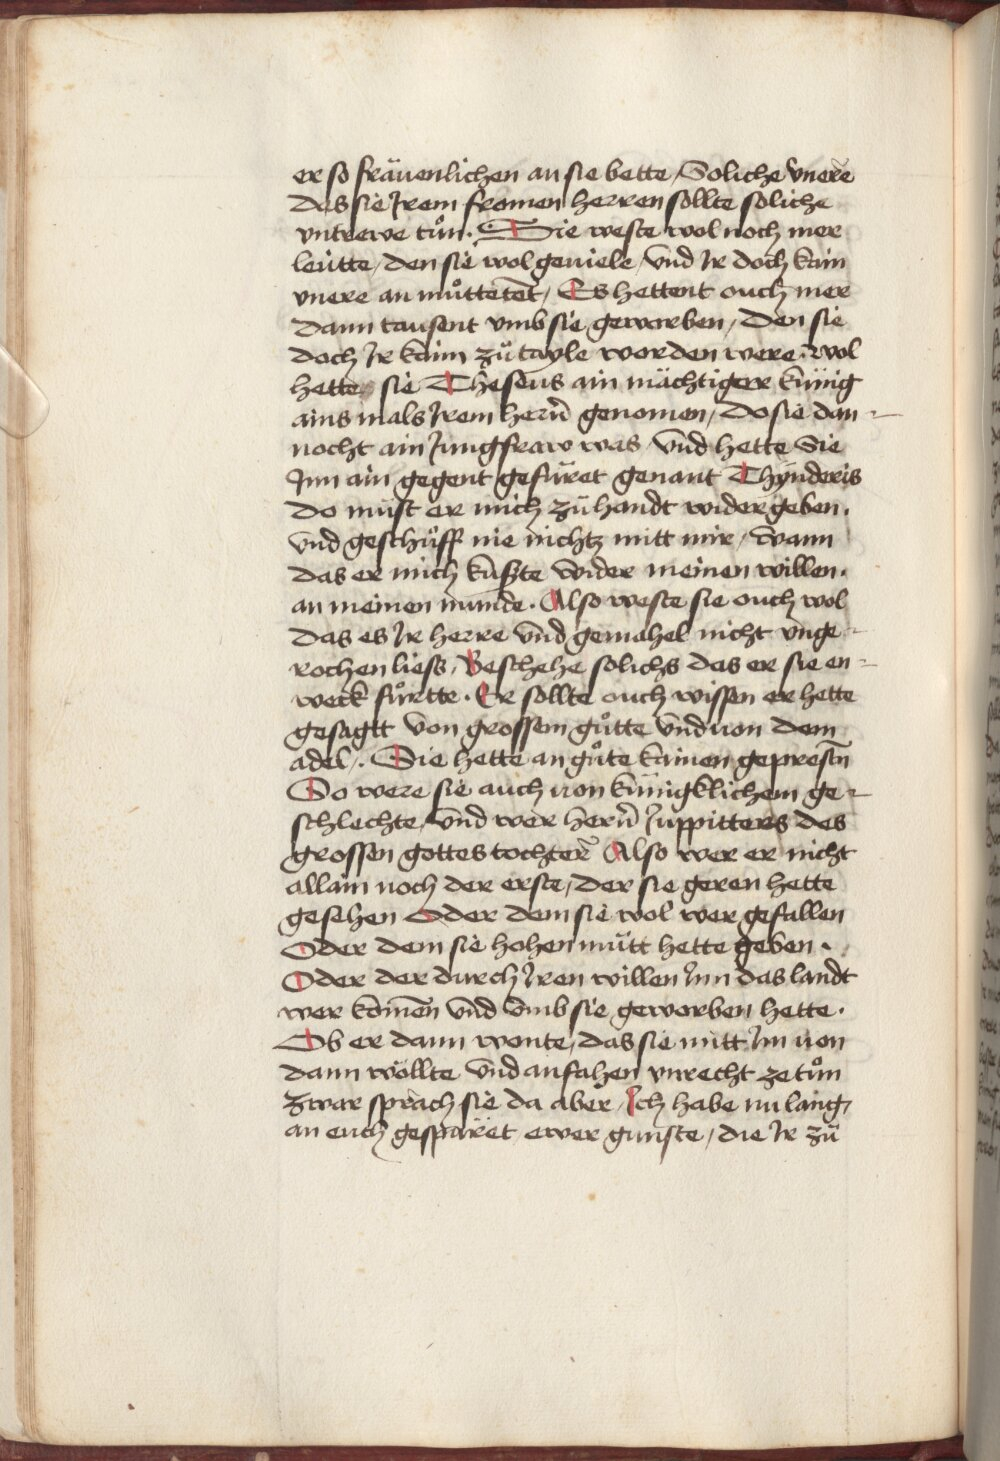 er so fräuenlichen an sie bette / Soliche vnere
das sie Jrem fromen herren sollte soliche
vntrewe tůn · Sie weste wol noch mer
leütte / den sie wol geuiele / vnd Jr doch kain
vnere an můttetēt / Es hettent ouch mer
dann tausent vmb sie geworben / Den sie
doch Jr kaim zů tayle worden were · wol
hette sie Theseus ain mächtiger künig
ains mals Jrem herñ genomen / do sie dan-
nocht ain Jungfraw was / vnd hette Sie
Jnn ain gegent gefüret genant Thÿnderis
do müst er mich zů handt wider geben ·
vnd geschůff nie nichtz mitt mir / wann
das er mich kußte wider meinen willen ·
an meinen munde · Also weste sie ouch wol
das es Jr herre vnd gemahel nicht vnge-
rochen liess / Beschehe solichs das er sie en-
weck fůrtte · Er sollte ouch wissen er hette
gesagtt von grossem gůtte vnd uon dem
adel / · Sie hette an gůte kainen geprestn̄
So were sie auch uon künigklichem ge-
schlechte / vnd wer herñ Juppitters des
grossen gottes tochter Also wer er nicht
allain noch der erste / der sie geren hette
gesehen Oder dem sie wol wer gefallen
Oder dem sie hohen mütt hette geben ·
Oder der durch Jren willen Jnn das landt
wer komēn vnd vmb sie geworben hette ·
Ob er dann wonte / das sie mitt Jm uon
dann wöllte vnd anfahen vnrecht ze tůn
zwar sprach sie da aber / Ich habe nu lang /
an euch gesparet ewer gunste / die Jr zů